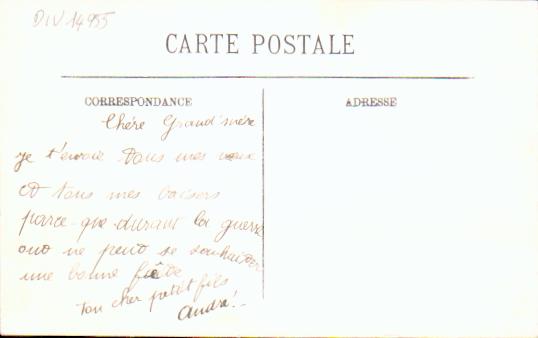 DIV 14955
CARTE POSTALE
CORRESPONDANCE
ADRESSE
Chère Grand'mère
je t'envoie tous mes vœux
et tous mes baisers
parce-que durant la guerre
on ne peut se souhaiter
une bonne fête
ton cher petit fils
André!-